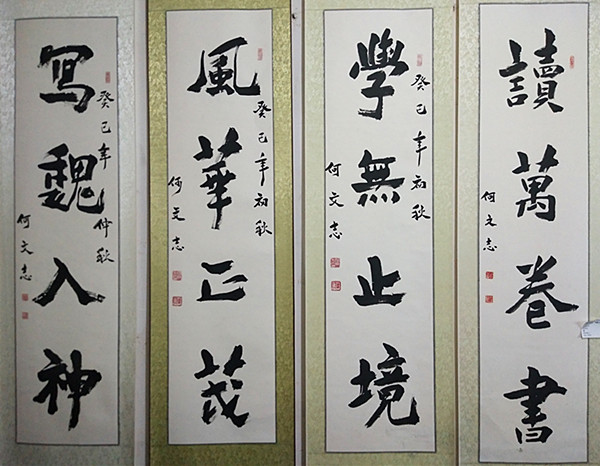 讀萬卷書
何文志
學無止境
癸巳年初秋
何文志
風華正茂
癸巳年初秋
何文志
寫魏入神
癸巳年仲秋
何文志